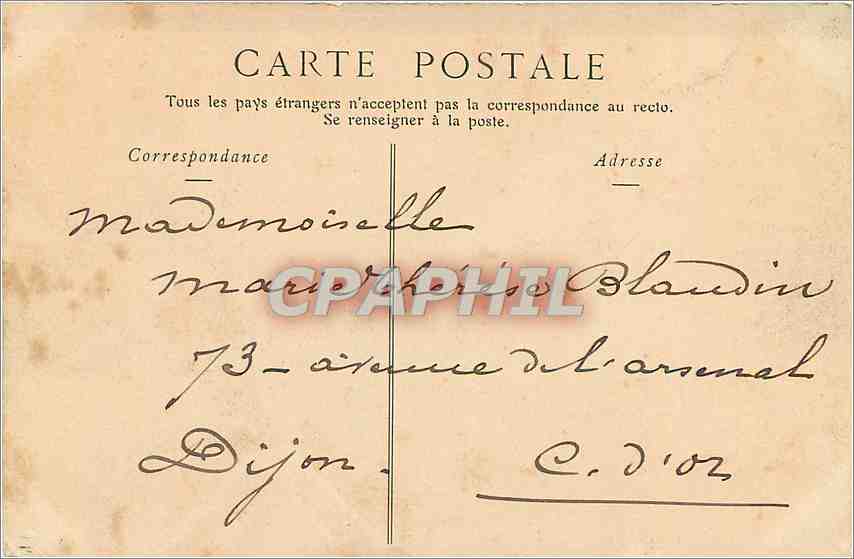 CARTE POSTALE
Tous les pays étrangers n'acceptent pas la correspondance au recto.
Se renseigner à la poste.
Correspondance
Adresse
Mademoiselle
Marie Thérèse Blandin
CPAPHIL
73 - avenue de l'arsenal
Dijon. C. d'Or